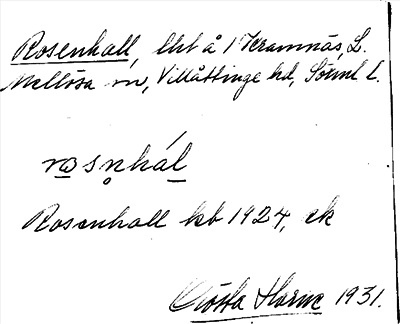 Rosenhall, lht å 1 Kramnäs, L.
Mellösa sn, Villåttinge hd, Söml l.
rɷsn̥hál
Rosenhall kb 1924, ek
Gösta Harne 1931.